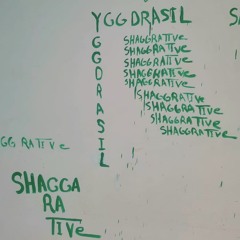 YGGDRASIL
GGDRASIL
SHAGGRATIVE
SHAGGRATIVE
SHAGGRATIVE
SHAGGRATIVE
SHAGGRATIVE
SHAGGRATIVE
SHAGGRATIVE
SHAGGRATIVE
SHAGGRATIVE
GG RATIVe
SHAGGA
RA
TIVe